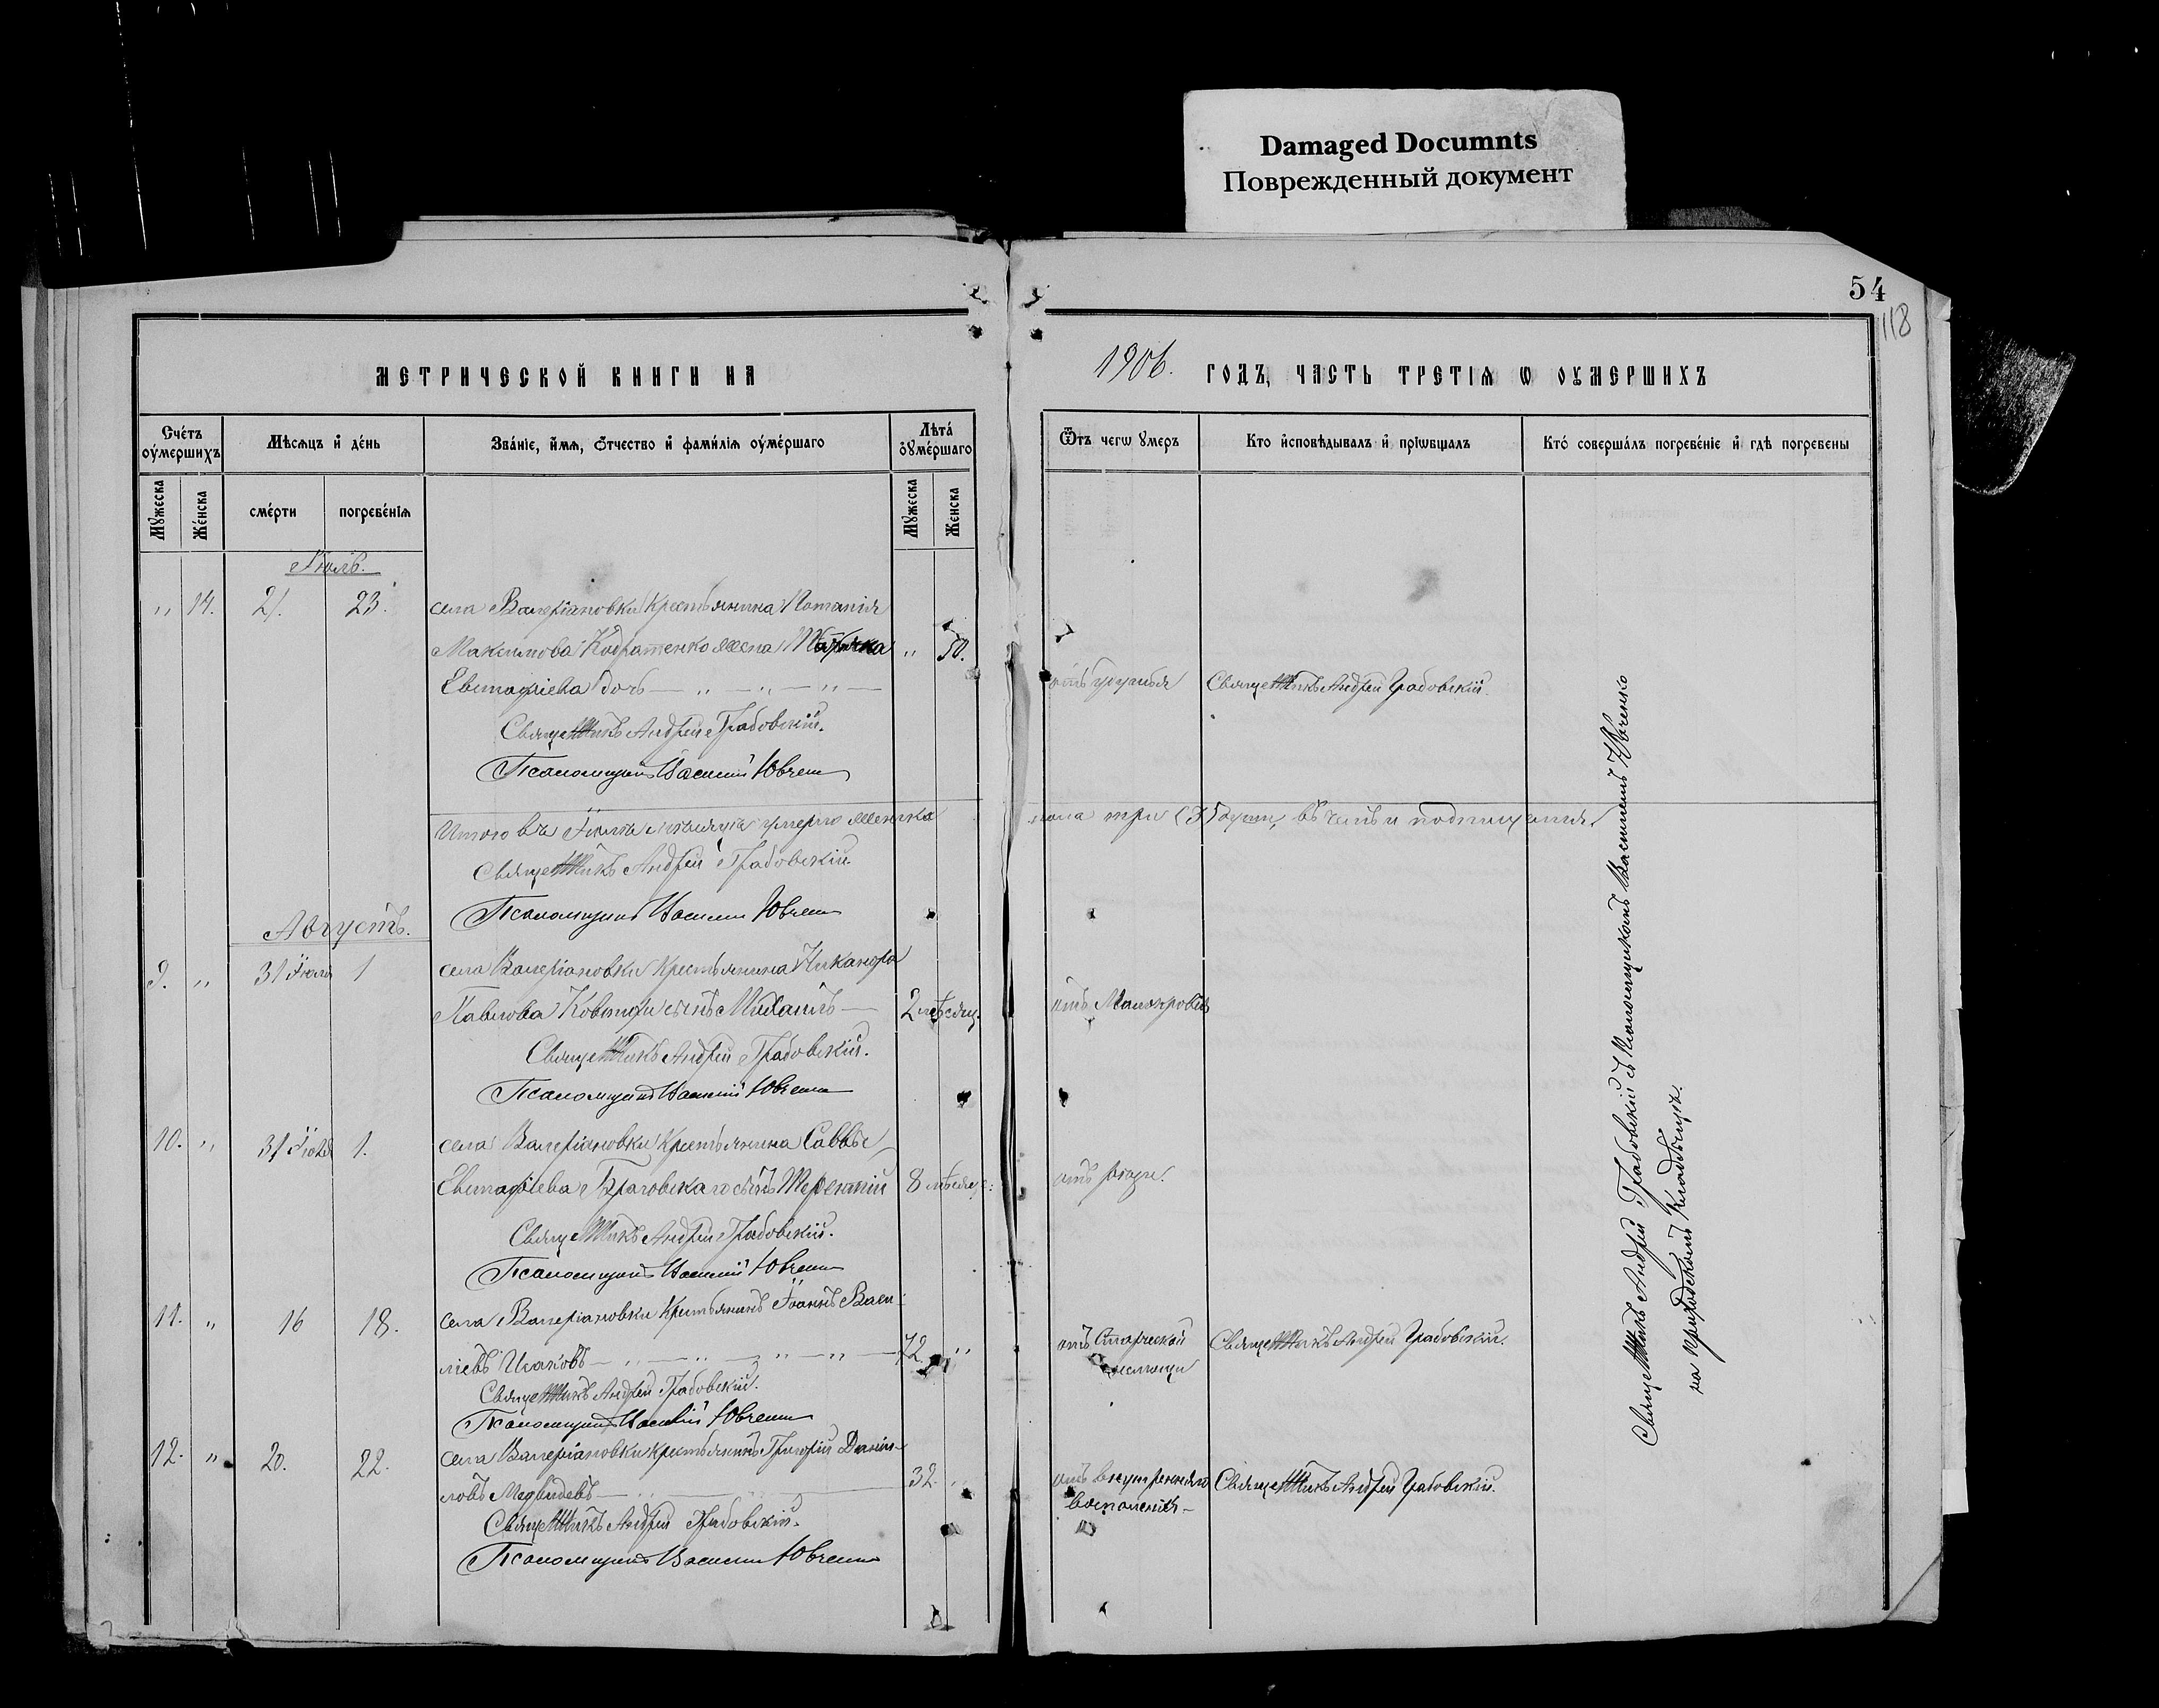 Damaged Documnts
Поврежденный документ
54
118
МЕТРИЧЕСКОЙ КНИГИ НА
1906. ГОДЪ, ЧАСТЬ ТРЕТІѦ Ѡ ОУМЕРШИХЪ
Счетъ оумершихъ
Мѣсяцъ и день
Званіе, имя, отчество и фамилія оумершаго
Лѣта оумершаго
Отъ чегѡ умеръ
Кто исповѣдывалъ и пріѡбщалъ
Кто совершалъ погребеніе и гдѣ погребены
Мужеска
Женска
смерти
погребенія
Мужеска
Женска
Іюль.
" 14. 21. 23. села Валеріановки крестьянина Потапія
Максимова Кодратенко жена " 50.
Евстафіева дочь — " — " — " — Священникъ Андрей Грабовскій.
Священникъ Андрей Грабовскій.
Псаломщикъ Василій Ювченко
Итого въ Іюлѣ мѣсяцѣ умерло женска
пола три (3) души, въ чемъ и подпишемся.
Священникъ Андрей Грабовскій
Псаломщикъ Василій Ювченко
Августъ.
9. " 31 Іюля 1 села Валеріановки крестьянина Никанора
Павлова сынъ Михаилъ — 2 мѣсяц. отъ Малокровія
Священникъ Андрей Грабовскій.
Псаломщикъ Василій Ювченко
10. " 31 Іюля 1. села Валеріановки крестьянина Саввы
Евстафіева сынъ Терентій 8 мѣсяц: отъ
Священникъ Андрей Грабовскій.
Псаломщикъ Василій Ювченко
11. " 16 18. села Валеріановки крестьянинъ Іоаннъ Васи-
ліевъ Исаковъ — " — " — " — " — 72 " отъ Старческой Священникъ Андрей Грабовскій.
немощи
Священникъ Андрей Грабовскій.
Псаломщикъ Василій Ювченко
12. " 20. 22. села Валеріановки крестьянинъ Григорій Даніи-
ловъ Медвидевъ — 32. " отъ внутренняго Священникъ Андрей Грабовскій.
воспаленія —
Священникъ Андрей Грабовскій.
Псаломщикъ Василій Ювченко
Священникъ Андрей Грабовскій съ Псаломщикомъ Василіемъ Ювченко
на приходскомъ кладбищѣ.